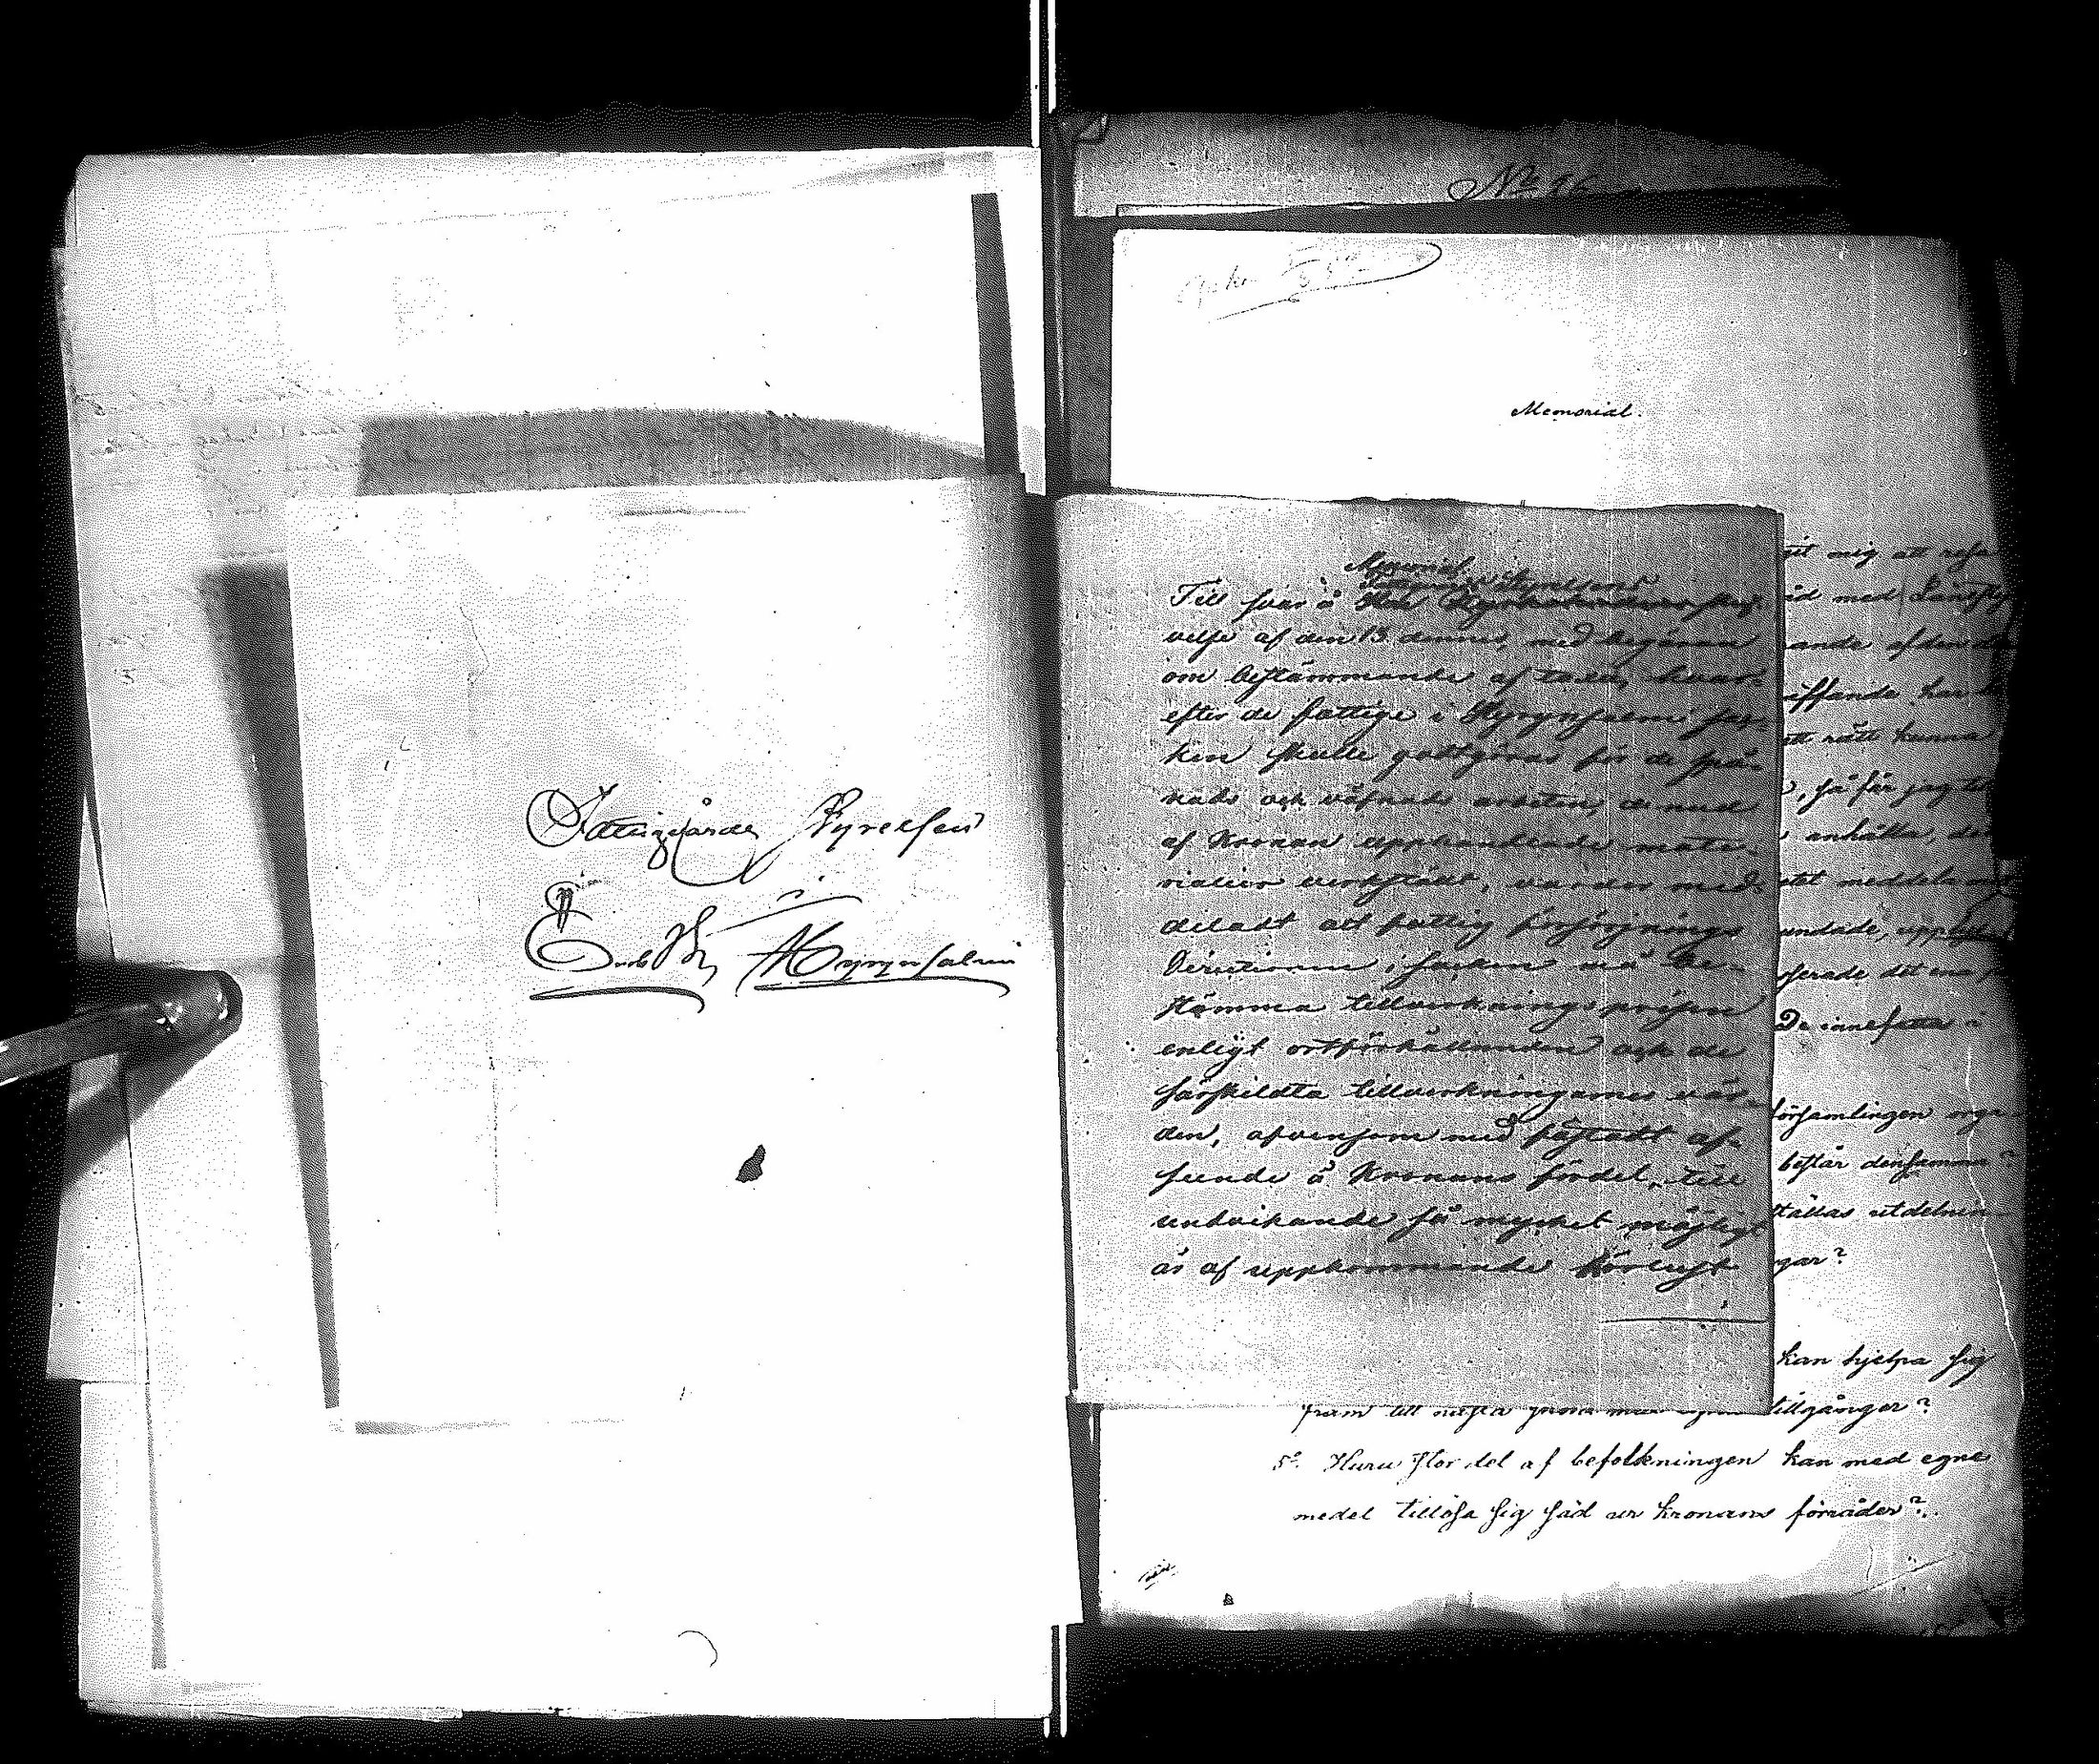 Fattigvårds Styrelsen
i
Hyrynsalmi
Memorial.
Memorial
Styrelsens
Till svar å
velse af den 13 dennes, med begäran
om bestämmande af taxa, hvar-
efter de fattige i Hyrynsalmi soc-
ken skulle godtgöras för de spå-
nads och väfnads arbeten, de med
af Kronan upphandlade mate-
rialier verkstält, varder med-
deladt att fattig försörjnings
Directionen i socken må be-
stämma tillverkningsprisen
enligt ortförhållanden och de
särskildta tillverkningarnes vär-
den, äfvensom med fästadt af-
seende å Kronans fördel, till
undvikande så mycket möjligt
är af uppkommande förlust
mig att resa
med
ande af den
ett rätt kunna
så får jag
anhålla, de
meddela
De innefatta i
församlingen orga
består densamma?
utdelnin
gar?
kan hjelpa sig
fram till nästa tillgångar?
5o. Huru stor del af befolkningen kan med egne
medel tillösa sig säd ur kronans förråder?